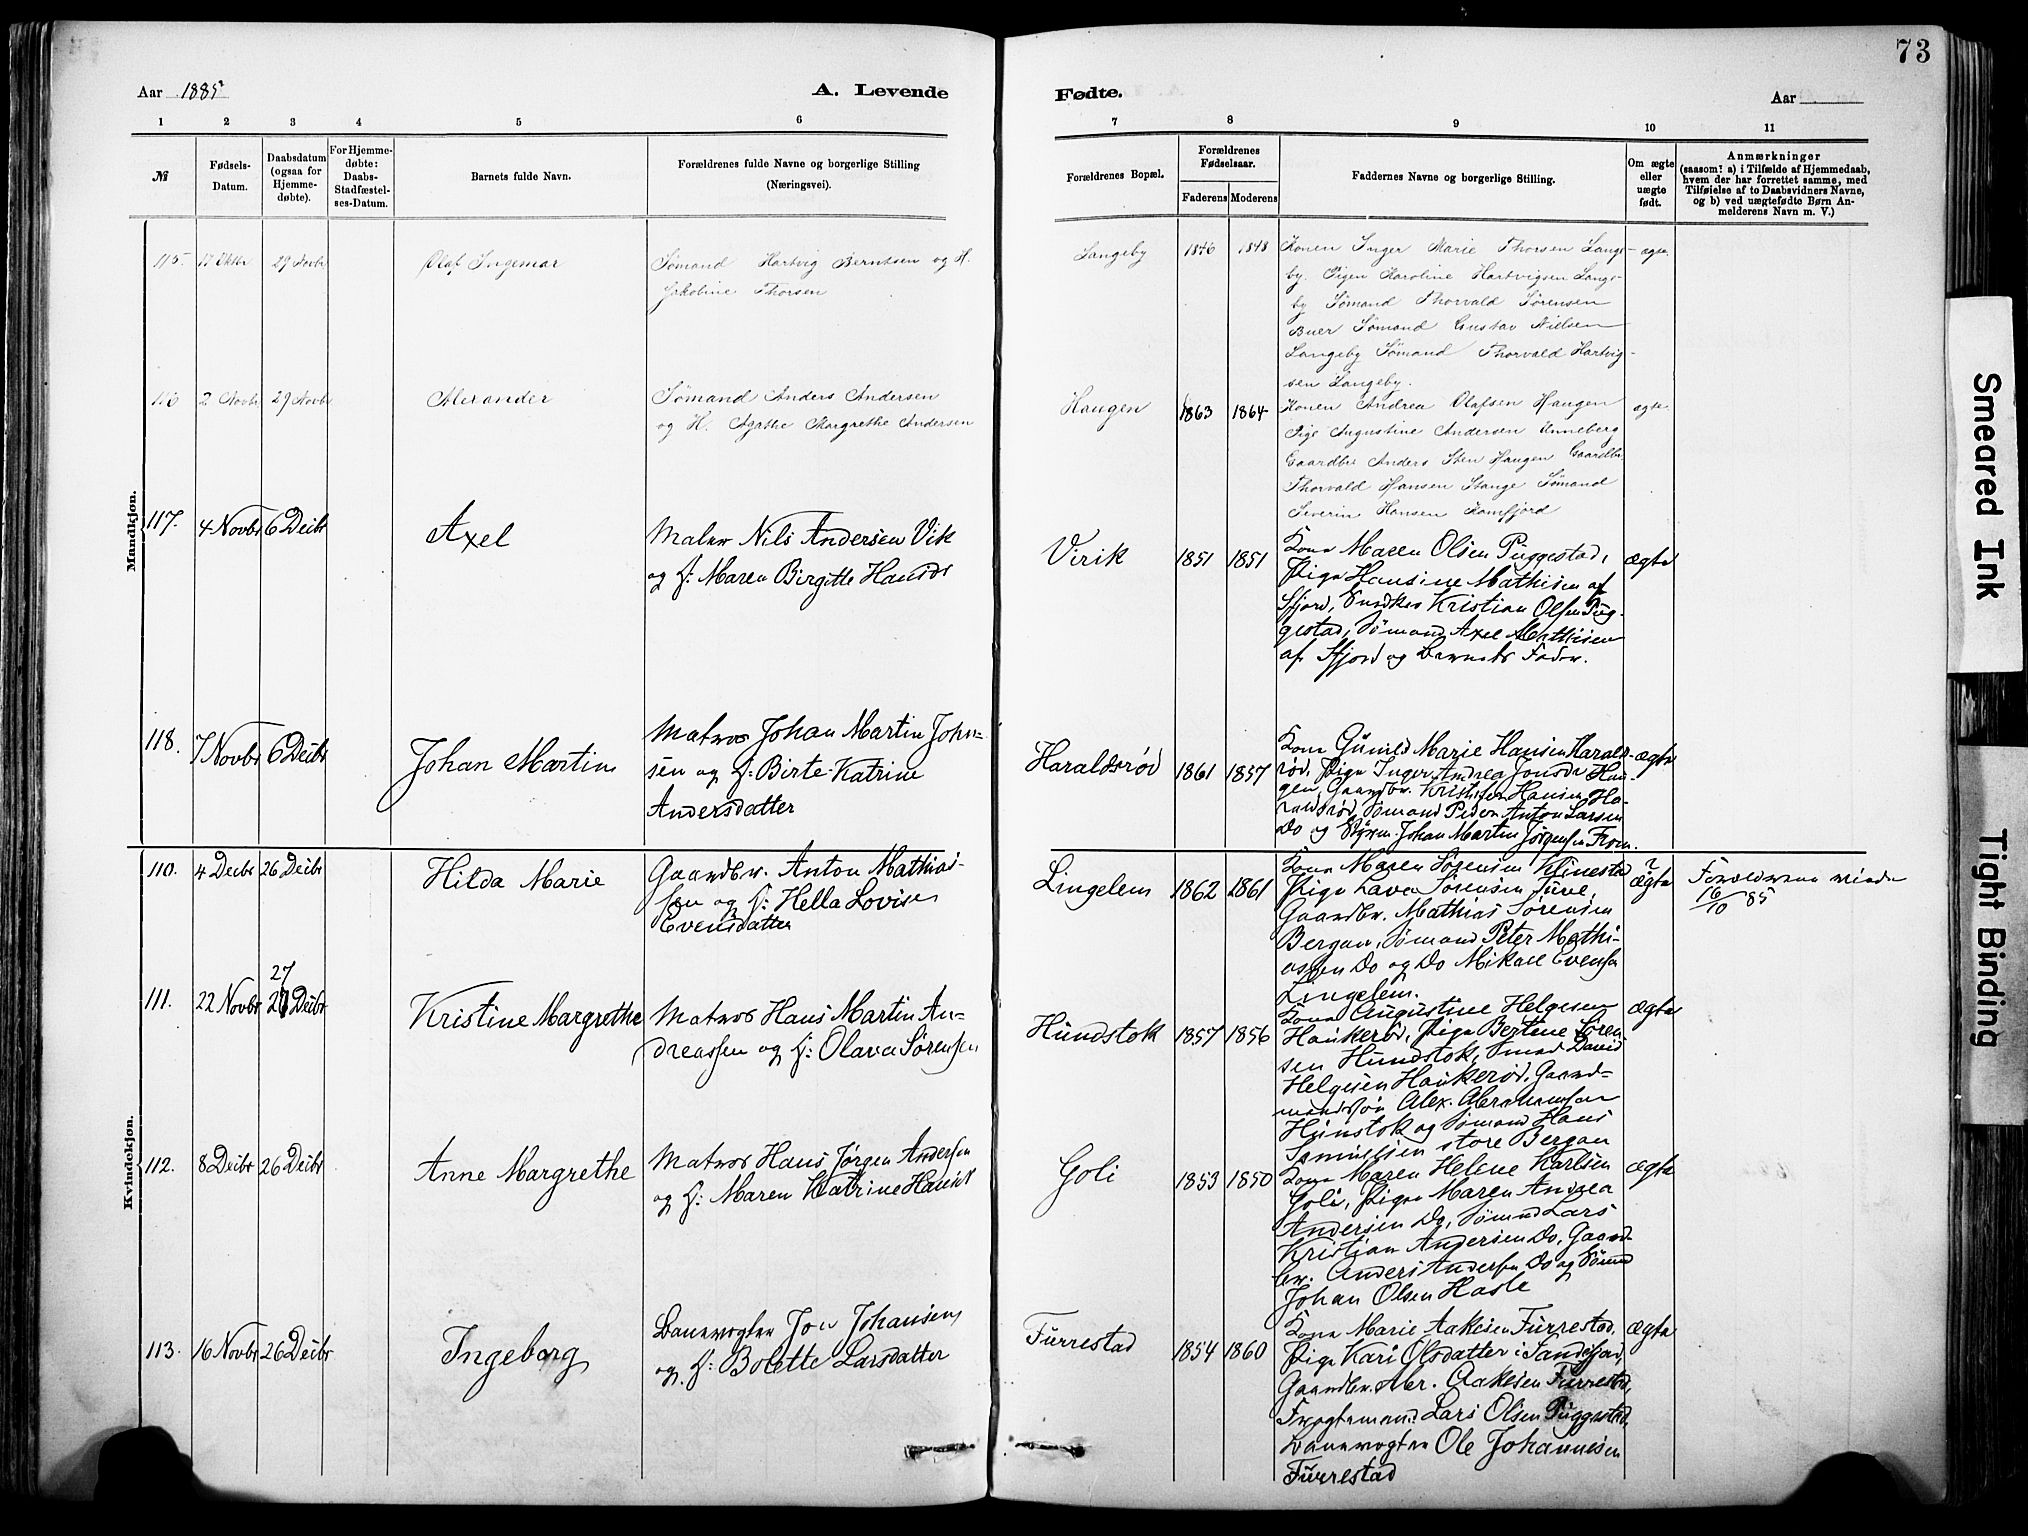 73
Aar 1885
A. Levende
Fødte.
Aar
1 2 3 4 5 6 7 8 9 10 11
№
Fødsels-
Datum.
Daabsdatum
(ogsaa for
Hjemme-
døbte).
For Hjemme-
døbte:
Daabs-
Stadfæstel-
ses-Datum.
Barnets fulde Navn.
Forældrenes fulde Navne og borgerlige Stilling
(Næringsvei).
Forældrenes Bopæl.
Forældrenes
Fødselsaar.
Faderens Moderens
Faddernes Navne og borgerlige Stilling.
Om ægte
eller
uægte
født.
Anmærkninger
(saasom: a) i Tilfælde af Hjemmedaab,
hvem der har forrettet samme, med
Tilføielse af to Daabsvidners Navne,
og b) ved uægtefødte Børn An-
melderens Navn m. V.)
Mandkjøn.
115. 29 Novbr Olaf Ingemar
Sømand Hartvig Berntsen og H.
Jakobine Thorsen
Langeby 1846 1848
Konen Inger Marie Thorsen Lange-
by. Pigen Karoline Hartvigsen Lange
by Sømand Thorvald Sørensen
Buer Sømand Gustav Nielsen
Langeby Sømand Thorvald Hartvig-
sen Langeby.
ægte.
116 2 Novbr 29 Novbr Alexander
Sømand Anders Andersen
og H. Agathe Margrethe Andersen
Haugen 1863 1864
Konen Andrea Olafsen Haugen
Pige Augustine Andersen Unneberg
Gaardbr Anders Sten Haugen Gaardbr
Thorvald Hansen Stange Sømand
Severin Hansen Kamfjord
ægte.
117. 4 Novbr 6 Decbr Axel
Maler Nils Andersen Vik
og H: Maren Birgitte Hansdr
Virik 1851 1851
Kone Maren Olsen Puggestad,
Pige Hansine Mathisen af
Sfjord, Snedker Kristian Olsen Pug-
gestad, Sømand Axel Mathisen
af Sfjord og Barnets Fader.
ægte
118. 7 Novbr 6 Decbr Johan Martin
Matros Johan Martin John-
sen og H: Birte Katrine
Andersdatter
Haraldsrød 1861 1857
Kone Gunild Marie Hansen Harals-
rød, Pige Inger Andrea Jonsdr Hau-
gen, Gaardbr. Kristofer Hansen Ha-
raldsrød, Sømand Peder Anton Larsen
Do og Styrm. Johan Martin Jørgensen Fram.
ægte
Kvindekjøn.
110. 4 Decbr 26 Decbr Hilda Marie
Gaardbr. Anton Mathias-
sen og H: Hella Lovise
Evensdatter
Lingelem 1862 1861
Kone Maren Sørensen Klinestad
Pige Lava Sørensen Juve,
Gaardbr. Mathias Sørensen
Bergan, Sømand Peter Mathi-
assen Do og Do Mikael Evensen
Lingelem.
?
ægte
Forældrene viede
16/10 85
111. 22 Novbr 27 Decbr Kristine Margrethe
Matros Hans Martin An-
dreassen og H: Olava Sørensen
Hundstok 1857 1856
Kone Augustine Helgesen
Haukerød, Pige Bertine Søren
sen Hundstok, Smed David
Helgesen Haukerød, Gaard-
mandssøn Alex. Abrahamsen
Hunstok og Sømand Hans
Samuelsen store Bergan
ægte
112. 8 Decbr 26 Decbr Anne Margrethe
Matros Hans Jørgen Andersen
og H: Maren Katrine Hansdr
Goli 1853 1850
Kone Maren Helene Karlsen
Goli, Pige Maren Andrea
Andersen Do, Sømand Lars
Kristian Andersen Do, Gaard-
br. Anders Andersen Do og Sømand
Johan Olsen Hasle
ægte
113. 16 Novbr 26 Decbr Ingeborg
Banevogter Jon Johansen
og H: Bolette Larsdatter
Furrestad 1854 1860
Kone Marie Aakesen Furrestad,
Pige Kari Olsdatter i Sandefjord,
Gaardbr. Abr. Aakesen Furrestad,
Frogtemand Lars Olsen Puggestad,
Banevogter Ole Johannesen
Furrestad
ægte
Smeared Ink
Tight Binding